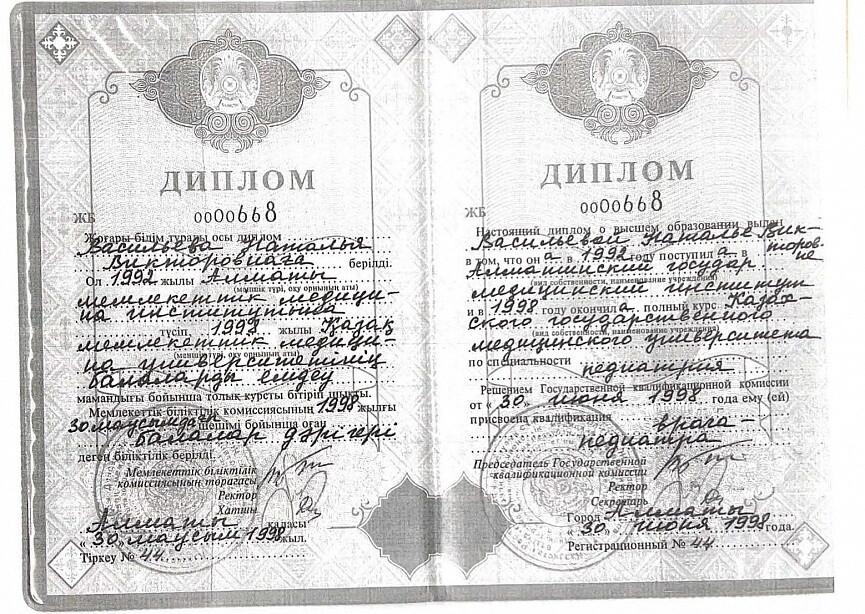 ДИПЛОМ
ЖБ 0000668
Жоғары білім туралы осы диплом
Васильева Наталья
Викторовнаға берілді.
Ол 1992 жылы Алматы
(меншік түрі, оқу орнының аты)
мемлекеттік медици-
на институтына
түсіп 1998 жылы Қазақ
мемлекеттік медици-
(меншік түрі, оқу орнының аты)
на университетінің
балаларды емдеу
мамандығы бойынша толық курсты бітіріп шықты.
Мемлекеттік біліктілік комиссиясының 1998 жылғы
30 маусымдағы шешімі бойынша оған
балалар дәрігері
деген біліктілік берілді.
Мемлекеттік біліктілік
комиссиясының төрағасы
Ректор
Хатшы
Алматы қаласы
« 30 » маусым 1998 жыл.
Тіркеу № 44
ДИПЛОМ
ЖБ 0000668
Настоящий диплом о высшем образовании выдан
Васильевой Наталье Вик-
торовне
в том, что он а в 1992 году поступил а в
Алматинский государ
медицинский институт
(вид собственности, наименование учреждения)
и в 1998 году окончил а полный курс Казах-
ского государственного
(вид собственности, наименование учреждения)
медицинского университета
по специальности
педиатрия
Решением Государственной квалификационной комиссии
от « 30 » июня 1998 года ему (ей)
присвоена квалификация
врача-
педиатра
Председатель Государственной
квалификационной комиссии
Ректор
Секретарь
Город Алматы
« 30 » июня 1998 года.
Регистрационный № 44